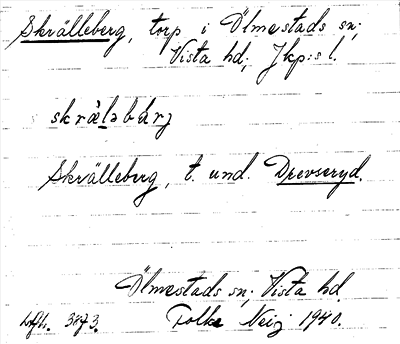 Skrälleberg, torp i Ölmestads sn;
Vista hd; Jkp:s l.
skrä̀ləbärj
Skrälleberg, t. und. Drevseryd.
Ölmestads sn; Vista hd.
Folke Neij 1940.